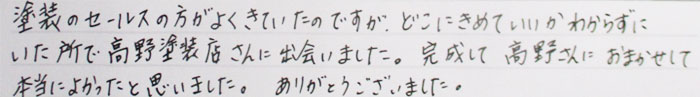 塗装のセールスの方がよくきていたのですが、どこにきめていいかわからずに
いた所で高野塗装店さんに出会いました。完成して高野さんにおまかせして
本当によかったと思いました。ありがとうございました。